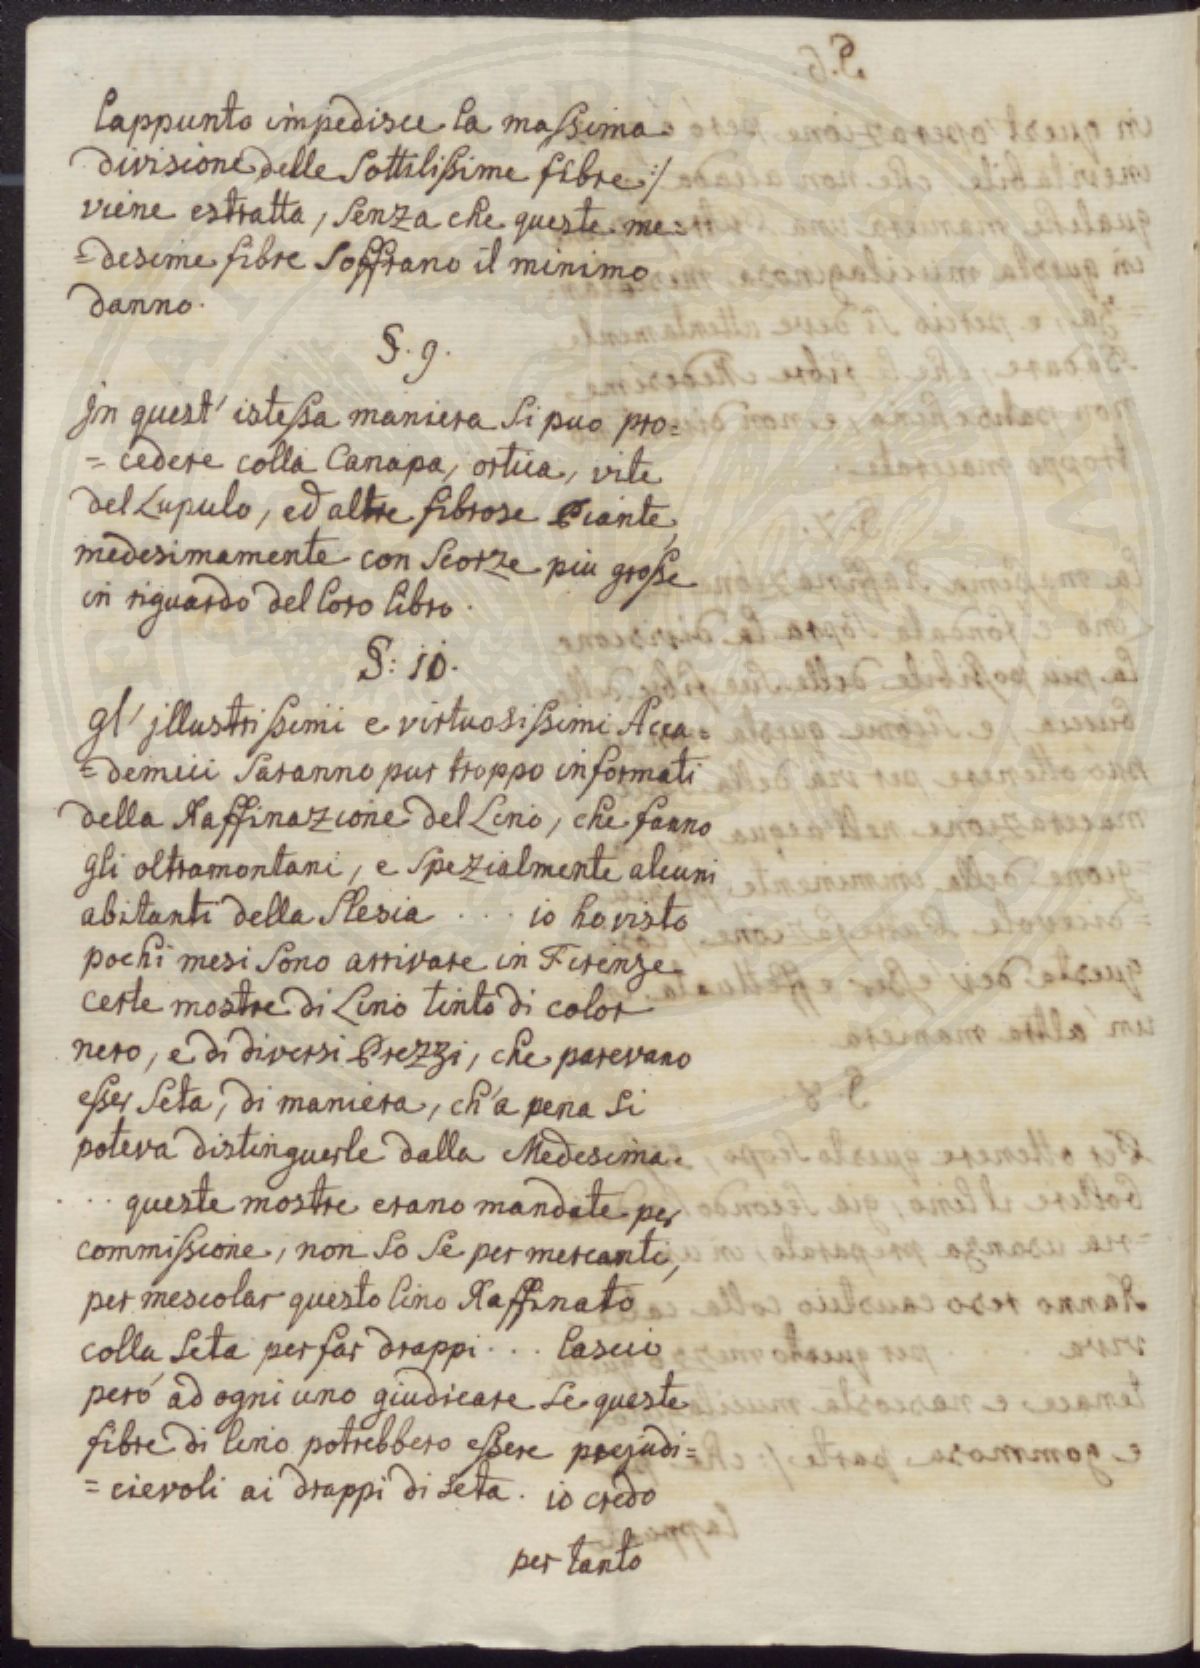 l'appunto impedisce la massima
divisione delle sottilissime fibre :/
viene estratta, senza che queste me=
=desime fibre soffrano il minimo
danno.
§. 9.
Jn quest' istessa maniera si puo pro=
=cedere colla Canapa, ortica, vite
del Lupulo, ed altre fibrose Piante,
medesimamente con scorze più grosse
in riguardo del loro libro.
§: 10.
gl' jllustrissimi e virtuosissimi Acca=
=demici saranno pur troppo informati
della Raffinazione del Lino, che fanno
gli oltramontani, e spezialmente alcuni
abitanti della Slesia . . . io ho visto
pochi mesi sono arrivare in Firenze
certe mostre di Lino tinto di color
nero, e di diversi Prezzi, che parevano
esser seta, di maniera, ch'a pena si
poteva distinguerle dalla Medesima.
. . . queste mostre erano mandate per
commissione, non so se per mercanti,
per mescolar questo lino Raffinato
colla seta per far drappi . . . lascio
peró ad ogni uno giudicare se queste
fibre di lino potrebbero essere prejudi=
=cievoli ai drappi di seta. io credo
per tanto